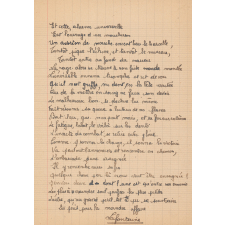 Et cette alarme universelle
Est l'ouvrage d'un moucheron
Un avorton de mouche en cent lieux le harcelle,
Tantôt pique l'échine, et tantôt le museau,
Tantôt entre au fond du naseau
La rage alors se trouve à son faîte montée
L'invisible ennemi triomphe, et rit de voir
Qu'il n'est griffe, ni dent en la bête irritée
Qui de la mettre en sang ne fasse son devoir
Le malheureux lion se déchire lui même
sa queue à l'entour de ses flancs
Bat l'air, qui n'en peut mais, et sa fureur extrême
Le fatigue, l'abat le voilà sur les dents
L'insecte du combat, se retire avec gloire
Comme il sonna la charge, il sonne la victoire
Va partout l'annoncer et rencontre en chemin,
L'embuscade d'une araignée
Il y rencontre aussi sa fin
Quelle chose par là nous peut être enseignée ?
J'en vois deux dont l'une est qu'entre nos ennemis
les plus à craindre sont souvent les plus petits
L'autre, qu'aux grands périls tel a pu se soustraire
Qui périt pour la moindre affaire
Lafontaine